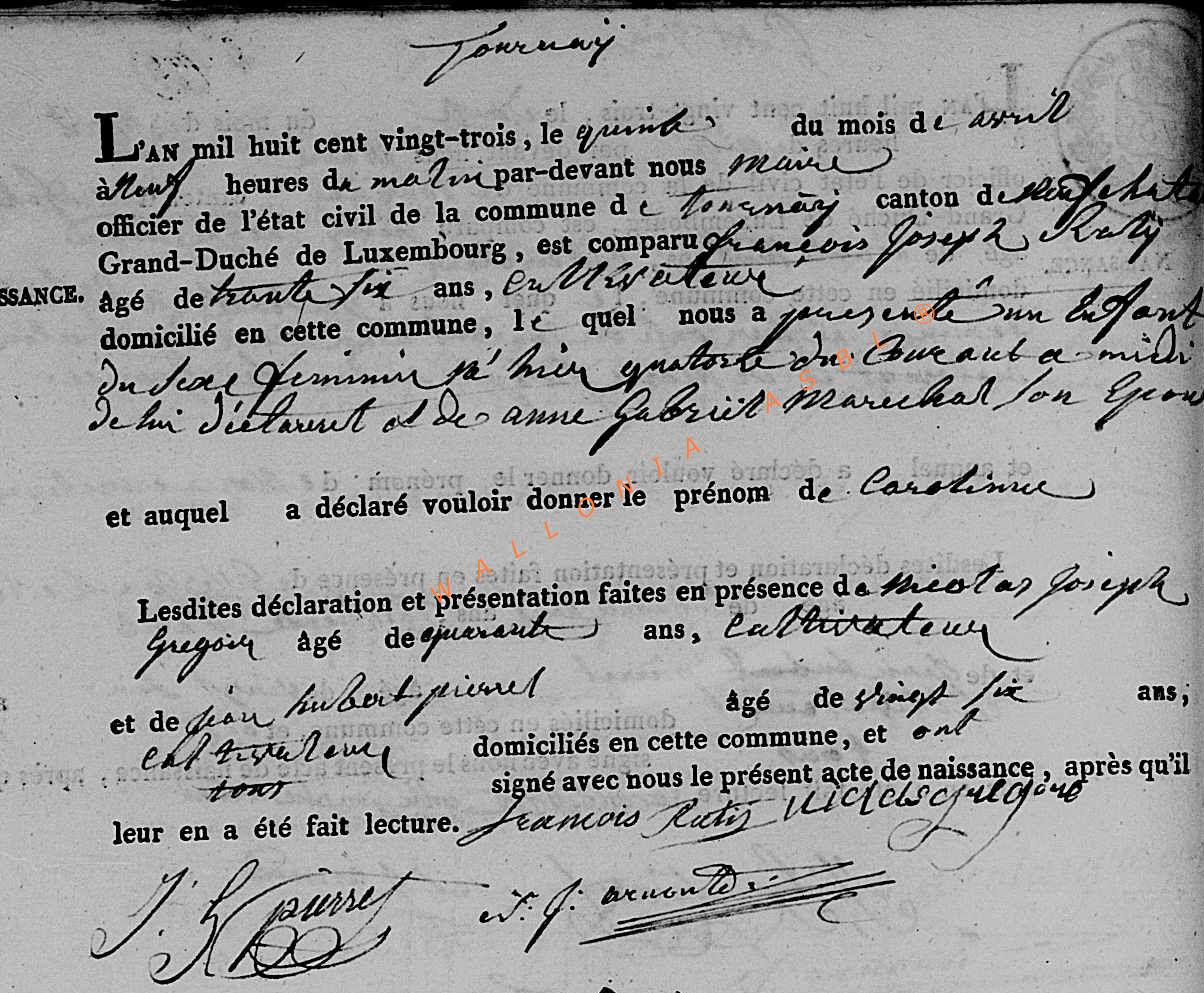 Tournay
L'AN mil huit cent vingt-trois, le quinze du mois de avril
à neuf heures du matin par-devant nous maire
officier de l'état civil de la commune de tournay canton de neufchate
Grand-Duché de Luxembourg, est comparu françois Joseph Raty
SSANCE. âgé de trante six ans, cultivateur
domicilié en cette commune, le quel nous a presenté un Enfant
du sexe feminin né hier quatorze du Courant a midi
de lui déclarent et de anne Gabriël Marechal son Epou
et auquel a déclaré vouloir donner le prénom de Carolinne
Lesdites déclaration et présentation faites en présence de nicolas Joseph
Gregoir âgé de quarante ans, Cultivateur
et de jean hubert pierret âgé de vingt six ans,
Cultivateur domiciliés en cette commune, et ont
tous signé avec nous le présent acte de naissance, après qu'il
leur en a été fait lecture. francois Raty nicolas gregoire
J. h pierret J. arnould
WALLONIA ASBL ®